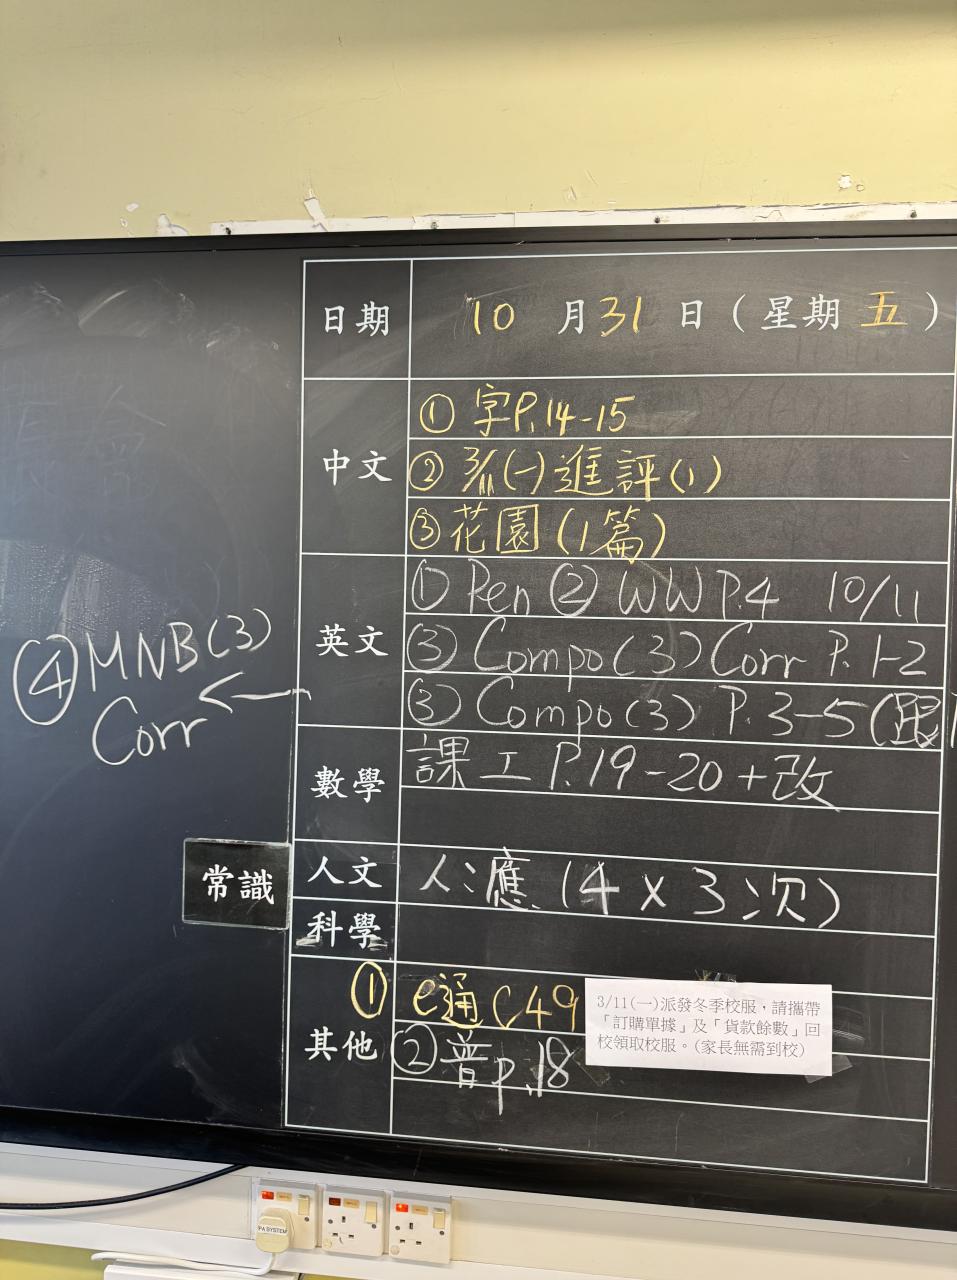 日期 10 月 31 日 ( 星期 五 )
中文
① 字P.14-15
② (一)進評(1)
③ 花園(1篇)
英文
① Pen ② WW P.4 10/11
③ Compo(3) Corr P.1-2
③ Compo(3) P.3-5(跟
④ MNB(3)
Corr
數學
課工 P.19-20+改
常識
人文 人:應(4x3次)
科學
其他
① e通 C49
② 普p.18
3/11(一)派發冬季校服，請攜帶
「訂購單據」及「貨款餘數」回
校領取校服。(家長無需到校)
PA SYSTEM